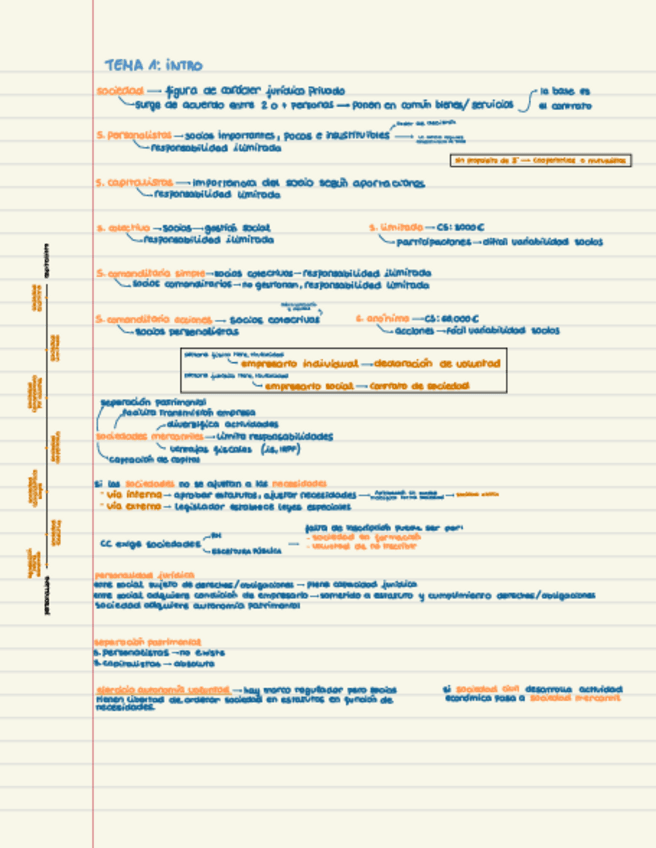 TEMA 1: INTRO
sociedad → figura de carácter jurídico privado
surge de acuerdo entre 2 o + personas → ponen en común bienes/servicios
la base es
el contrato
S. personalistas → socios importantes, pocos e insustituibles
responsabilidad ilimitada
sin propósito de → cooperativas o mutualistas
S. capitalistas → importancia del socio según aportaciones
responsabilidad limitada
S. colectiva → socios → gestión social
responsabilidad ilimitada
S. limitada → CS: 3000€
participaciones → difícil variabilidad socios
S. comanditaria simple → socios colectivos → responsabilidad ilimitada
socios comanditarios → no gestionan, responsabilidad limitada
S. comanditaria acciones → socios colectivos
socios personalistas
S. anónima → CS: 60,000€
acciones → fácil variabilidad socios
empresario individual → declaración de voluntad
empresario social → contrato de sociedad
separación patrimonial
facilita transmisión empresa
diversifica actividades
sociedades mercantiles → limita responsabilidades
ventajas fiscales (IS, IRPF)
captación de capital
si las sociedades no se ajustan a las necesidades
- vía interna → aprobar estatutos, ajustar necesidades →
- vía externa → legislador establece leyes especiales
CC exige sociedades
RM
ESCRITURA PÚBLICA
falta de inscripción puede ser por:
- sociedad en formación
- voluntad de no inscribir
personalidad jurídica
ente social sujeto de derechos/obligaciones → plena capacidad jurídica
ente social adquiere condición de empresario → sometido a estatuto y cumplimiento derechos/obligaciones
sociedad adquiere autonomía patrimonial
separación patrimonial
S. personalistas → no existe
S. capitalistas → absoluta
ejercicio autonomía voluntad → hay marco regulador pero socios
tienen libertad de ordenar sociedad en estatutos en función de
necesidades.
si sociedad civil desarrolla actividad
económica pasa a sociedad mercantil